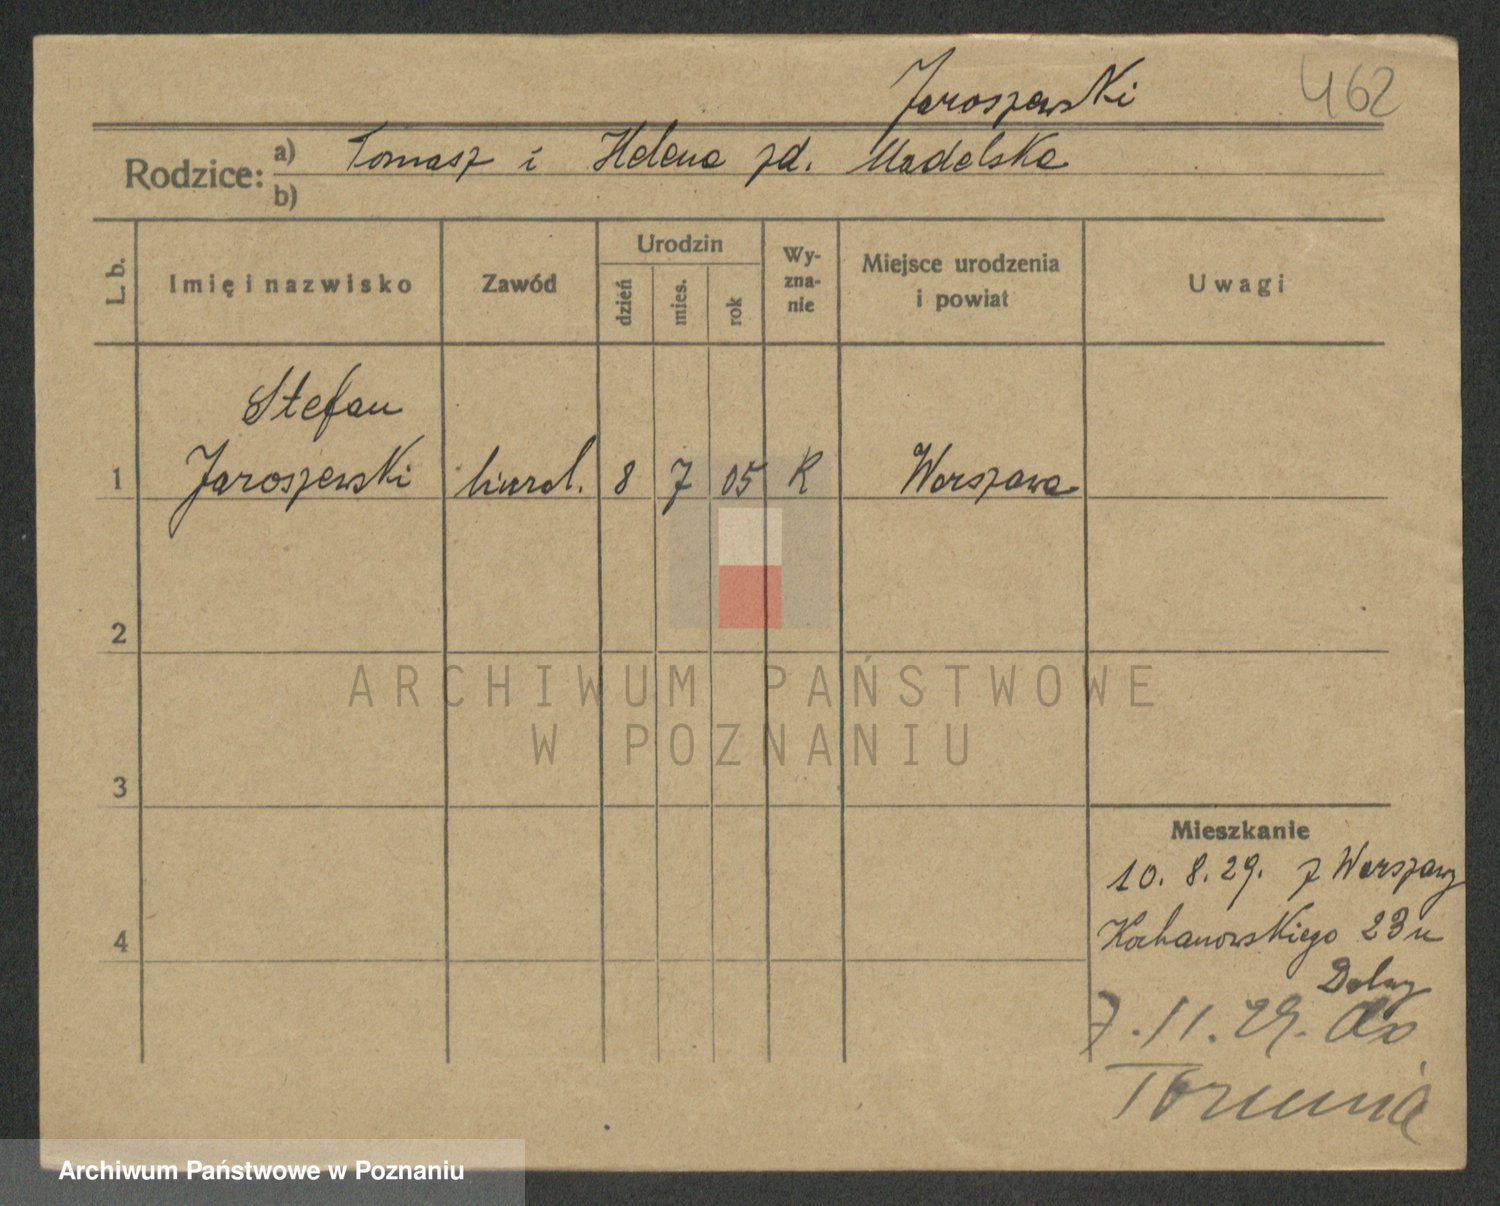 Jaroszewski 462
Rodzice: a) Tomasz i Helena zd. Madelska
b)
L. b. Imię i nazwisko Zawód Urodzin dzień mies. rok Wy-zna-nie Miejsce urodzenia i powiat Uwagi
Stefan
1 Jaroszewski 8 7 05 R Warszawa
2
ARCHIWUM PAŃSTWOWE
W POZNANIU
3
Mieszkanie
10. 8. 29. z Warszawy
Kochanowskiego 23 u
4
7. 11. 29. do
Torunia
Archiwum Państwowe w Poznaniu